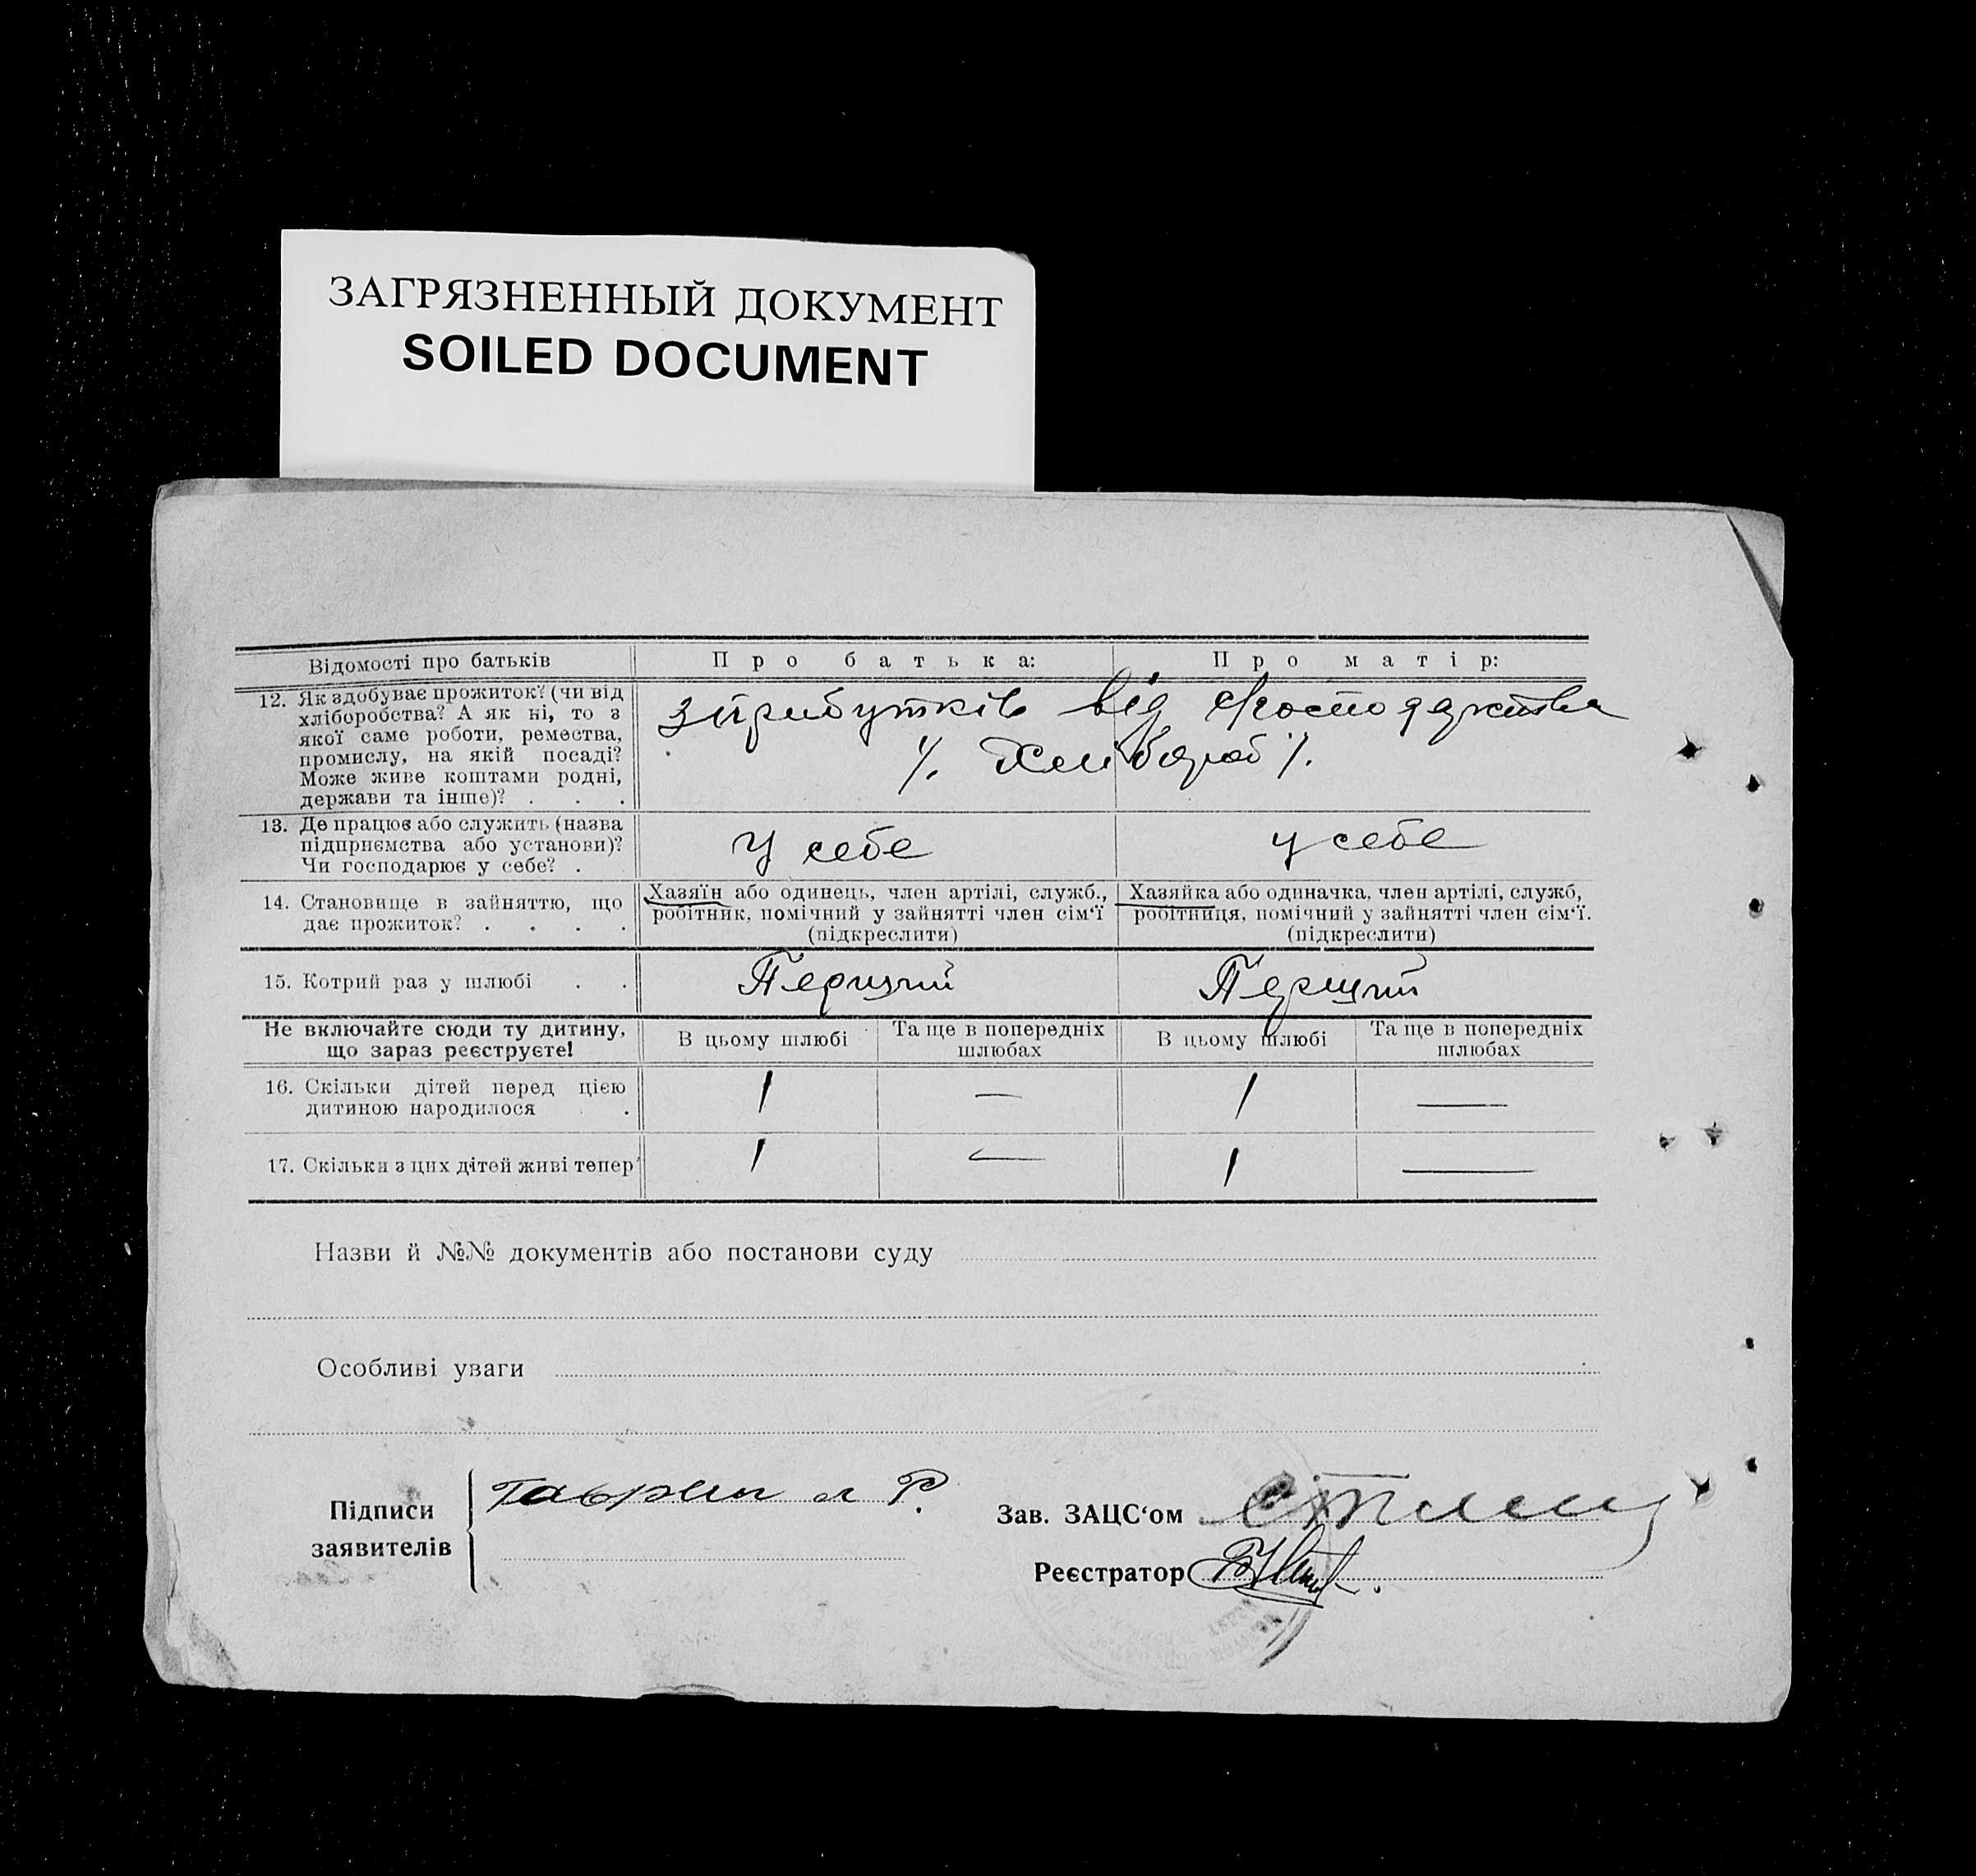 ЗАГРЯЗНЕННЫЙ ДОКУМЕНТ
SOILED DOCUMENT
Відомості про батьків
Про батька:
Про матір:
12. Як здобуває прожиток? (чи від
хліборобства? А як ні, то з
якої саме роботи, ремества,
промислу, на якій посаді?
Може живе коштами родні,
держави та інше)? . . .
зприбутків від господарства
/. хлібороб /.
13. Де працює або служить (назва
підприємства або установи)?
Чи господарює у себе? .
У себе
у себе
14. Становище в зайняттю, що
дає прожиток? . . . .
Хазяїн або одинець, член артілі, служб.,
робітник, помічний у зайнятті член сім'ї
(підкреслити)
Хазяйка або одиначка, член артілі, служб,
робітниця, помічний у зайнятті член сім'ї.
(підкреслити)
15. Котрий раз у шлюбі . .
Перший
Перший
Не включайте сюди ту дитину,
що зараз реєструєте!
В цьому шлюбі
Та ще в попередніх
шлюбах
В цьому шлюбі
Та ще в попередніх
шлюбах
16. Скільки дітей перед цією
дитиною народилося .
1
—
1
—
17. Скільки з цих дітей живі тепер
1
—
1
—
Назви й №№ документів або постанови суду
Особливі уваги
Підписи
заявителів
Зав. ЗАЦС'ом
Реєстратор